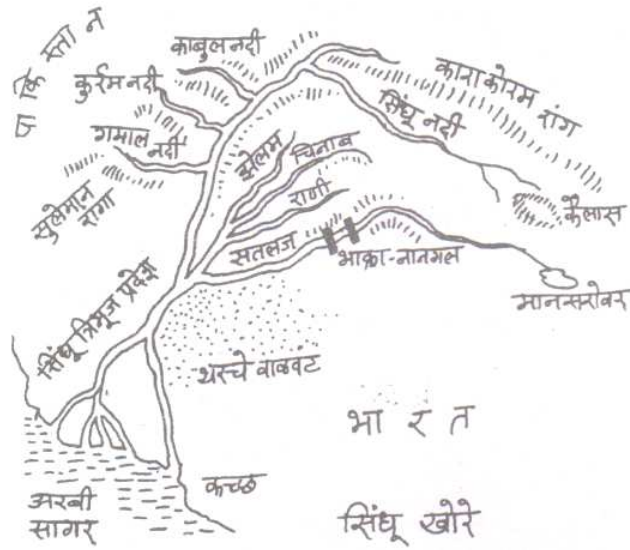 पाकिस्तान
काबुल नदी
कुर्रम नदी
गमाल
नदी
काराकोरम रांग
सिंधू नदी
सुलेमान
रांगा
झेलम
चिनाब
राणी
सतलज
भाक्रा-नानगल
कैलास
मानसरोवर
सिंधू त्रिभूज प्रदेश
थरचे वाळवंट
भारत
अरबी
सागर
कच्छ
सिंधू खोरे